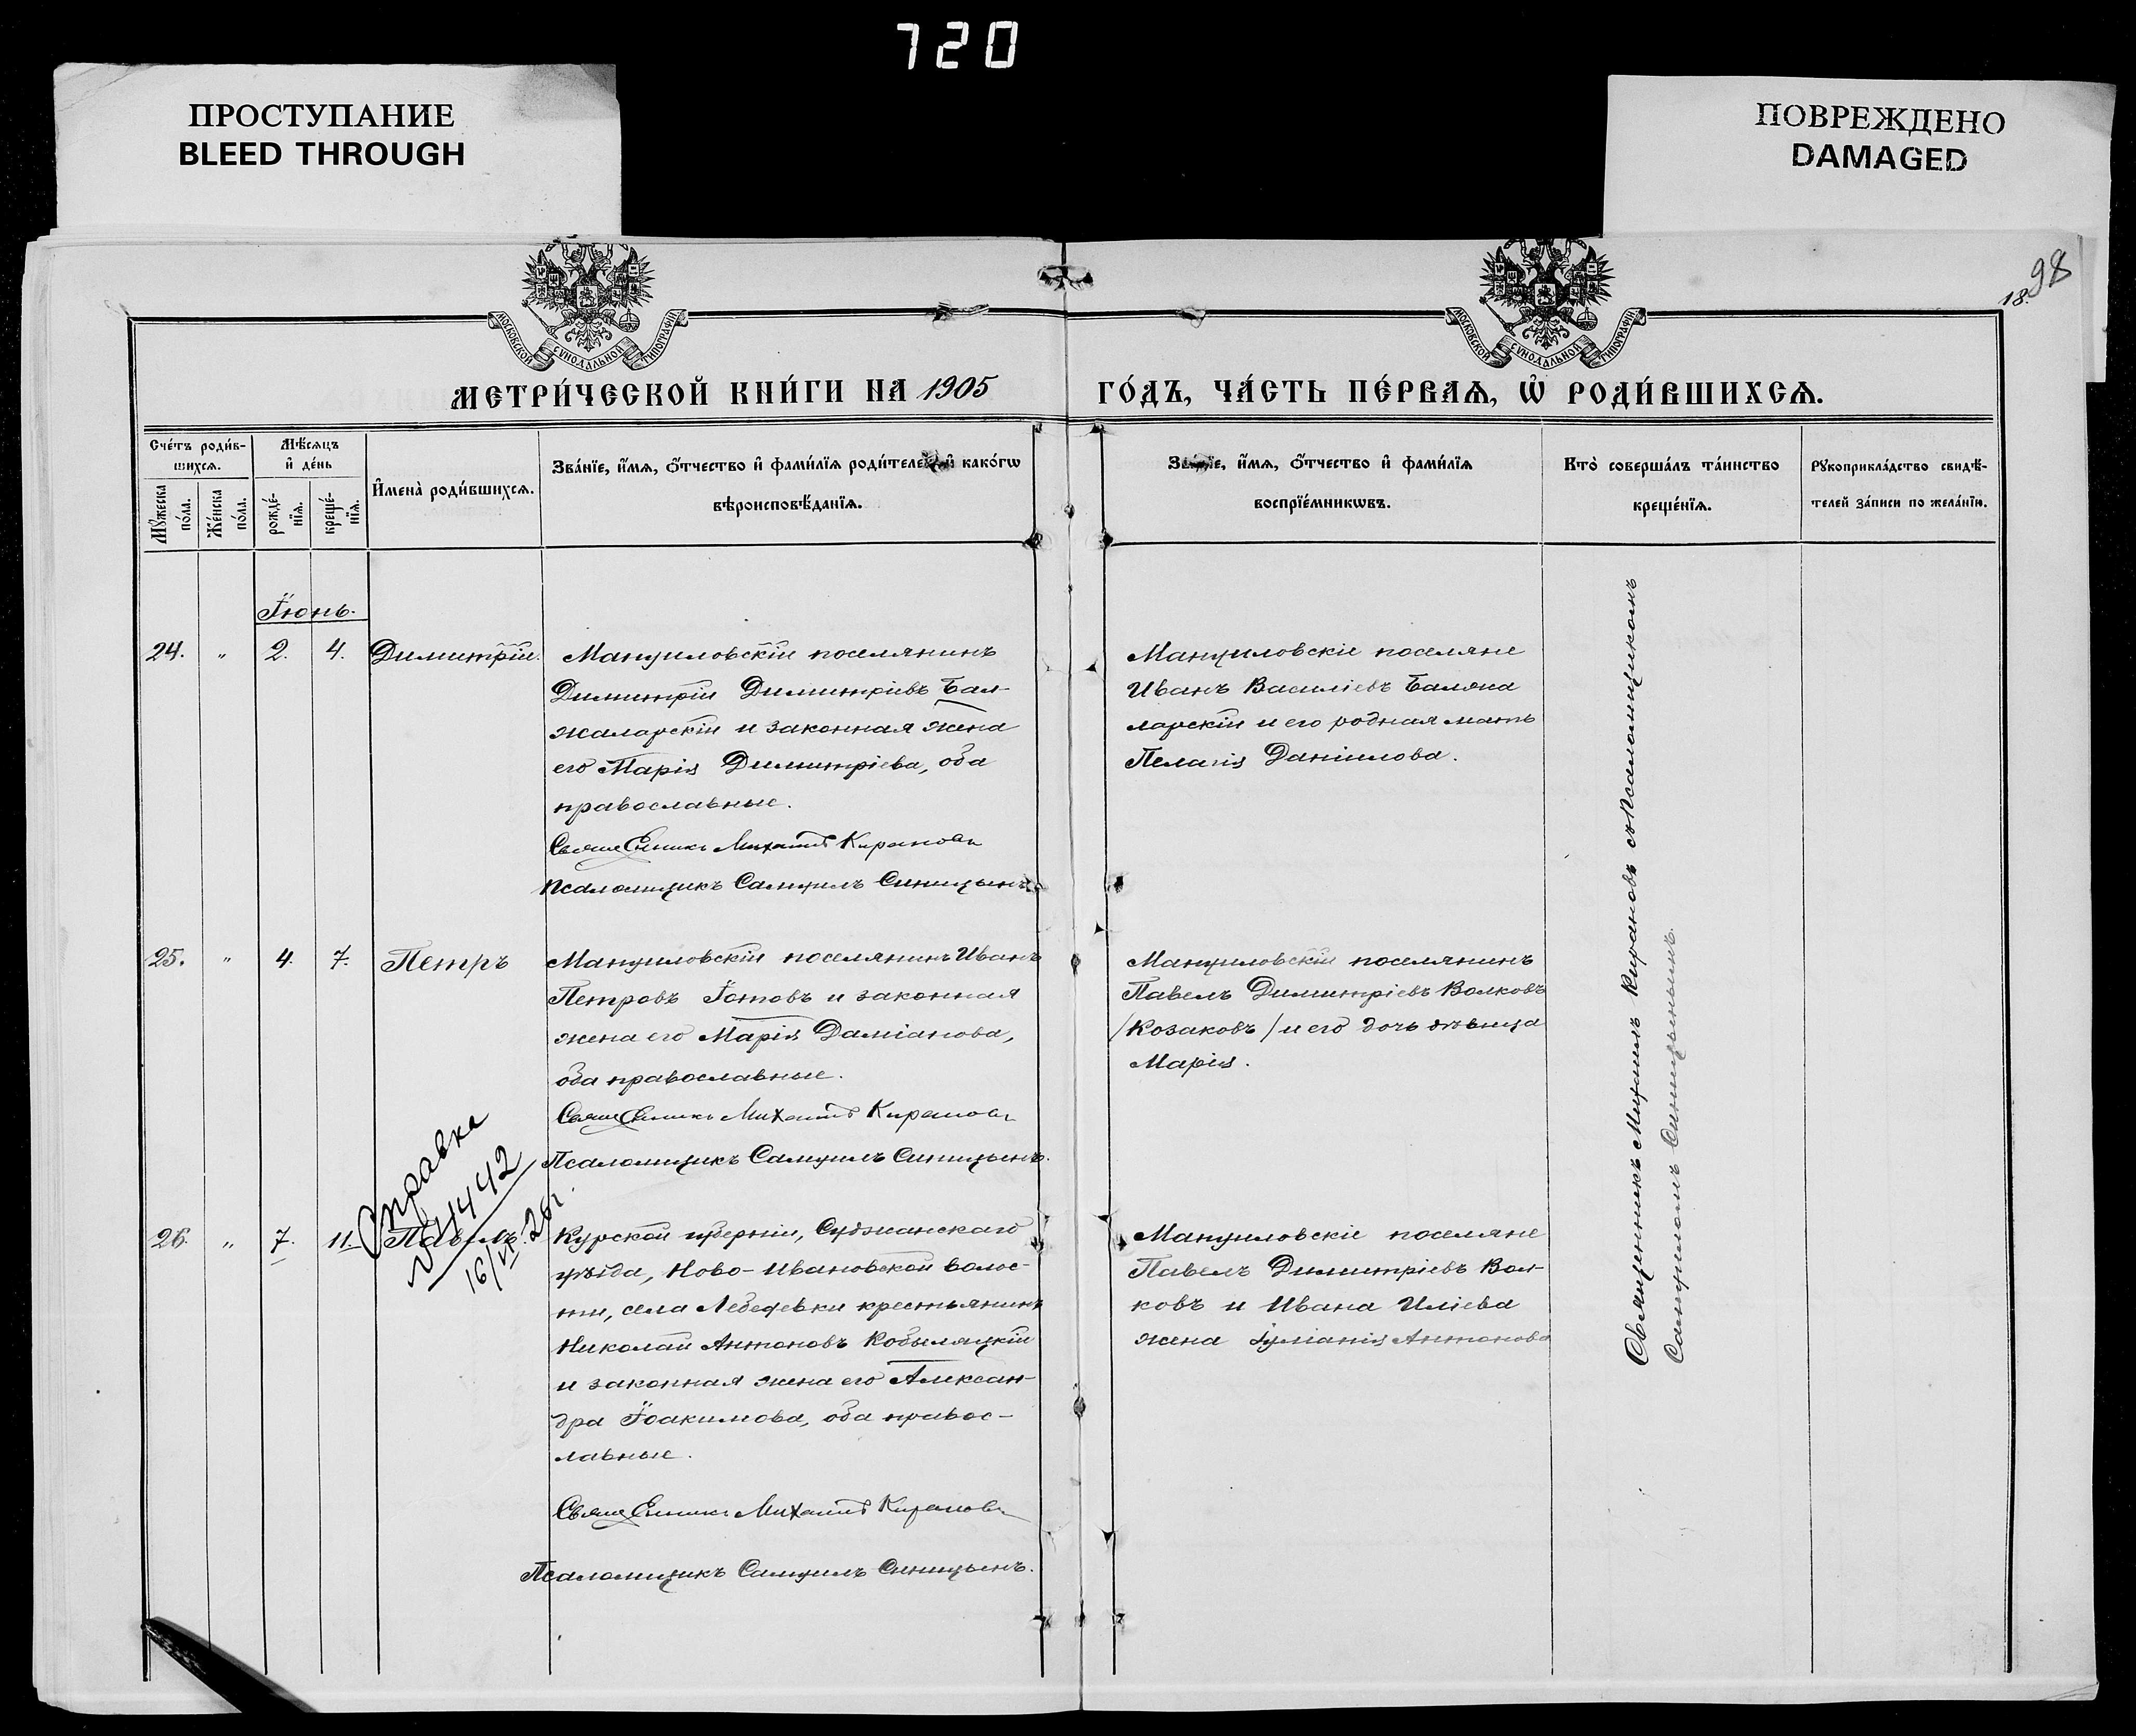 720
ПРОСТУПАНИЕ
BLEED THROUGH
ПОВРЕЖДЕНО
DAMAGED
98
18.
МОСКОВСКОЙ СУНОДАЛЬНОЙ ТИПОГРАФІИ
МОСКОВСКОЙ СУНОДАЛЬНОЙ ТИПОГРАФІИ
МЕТРИ́ЧЕСКОЙ КНИ́ГИ НА 1905
ГО́ДЪ, ЧА́СТЬ ПЕ́РВАѦ, Ѡ҆ РОДИ́ВШИХСѦ.
Сче́тъ роди́в-
шихсѧ.
Мѣ́сѧцъ
и҆ де́нь
Мꙋ́жеска
по́ла.
Же́нска
по́ла.
рожде́-
нїѧ.
креще́-
нїѧ.
И҆мена̀ роди́вшихсѧ.
Зва́нїе, и҆́мѧ, ѻ҆́тчество и҆ фами́лїѧ роди́телей, и҆ како́гѡ
вѣроисповѣ́данїѧ.
Зва́нїе, и҆́мѧ, ѻ҆́тчество и҆ фами́лїѧ
воспрїе́мникѡвъ.
Кто̀ соверша́лъ та́инство
креще́нїѧ.
Рꙋкоприкла́дство свидѣ́-
телей за́писи по жела́нїю.
Іюнь.
24. " 2. 4. Димитрій.
Мануиловскій поселянинъ
Димитрій Димитріевъ Бал-
жаларскій и законная жена
его Марія Димитріева, оба
православные.
Священникъ Михаилъ Кирановъ
Псаломщикъ Самуилъ Синицынъ
Мануиловскіе поселяне
Иванъ Василіевъ Балжа
ларскій и его родная мать
Пелагія Даніилова.
25. " 4. 7. Петръ
Мануиловскій поселянинъ Иванъ
Петровъ Іотовъ и законная
жена его Марія Даміанова,
оба православные.
Священникъ Михаилъ Кирановъ
Псаломщикъ Самуилъ Синицынъ.
Мануиловскій поселянинъ
Павелъ Димитріевъ Волковъ
/Козаковъ/ и его дочь дѣвица
Марія.
Справка
№ 11442
16/VI 26г.
26. " 7. 11. Павелъ.
Курской губерніи, Суджанскаго
уѣзда, Ново-Ивановской волос-
ти, села Лебедевки крестьянинъ
Николай Антоновъ Кобыляцкій
и законная жена его Алексан-
дра Іоакимова, оба правос-
лавные.
Священникъ Михаилъ Кирановъ
Псаломщикъ Самуилъ Синицынъ.
Мануиловскіе поселяне
Павелъ Димитріевъ Вол-
ковъ и Ивана Иліева
жена Іуліанія Антонова
Священникъ Михаилъ Кирановъ съ Псаломщикомъ
Самуиломъ Синицынымъ.